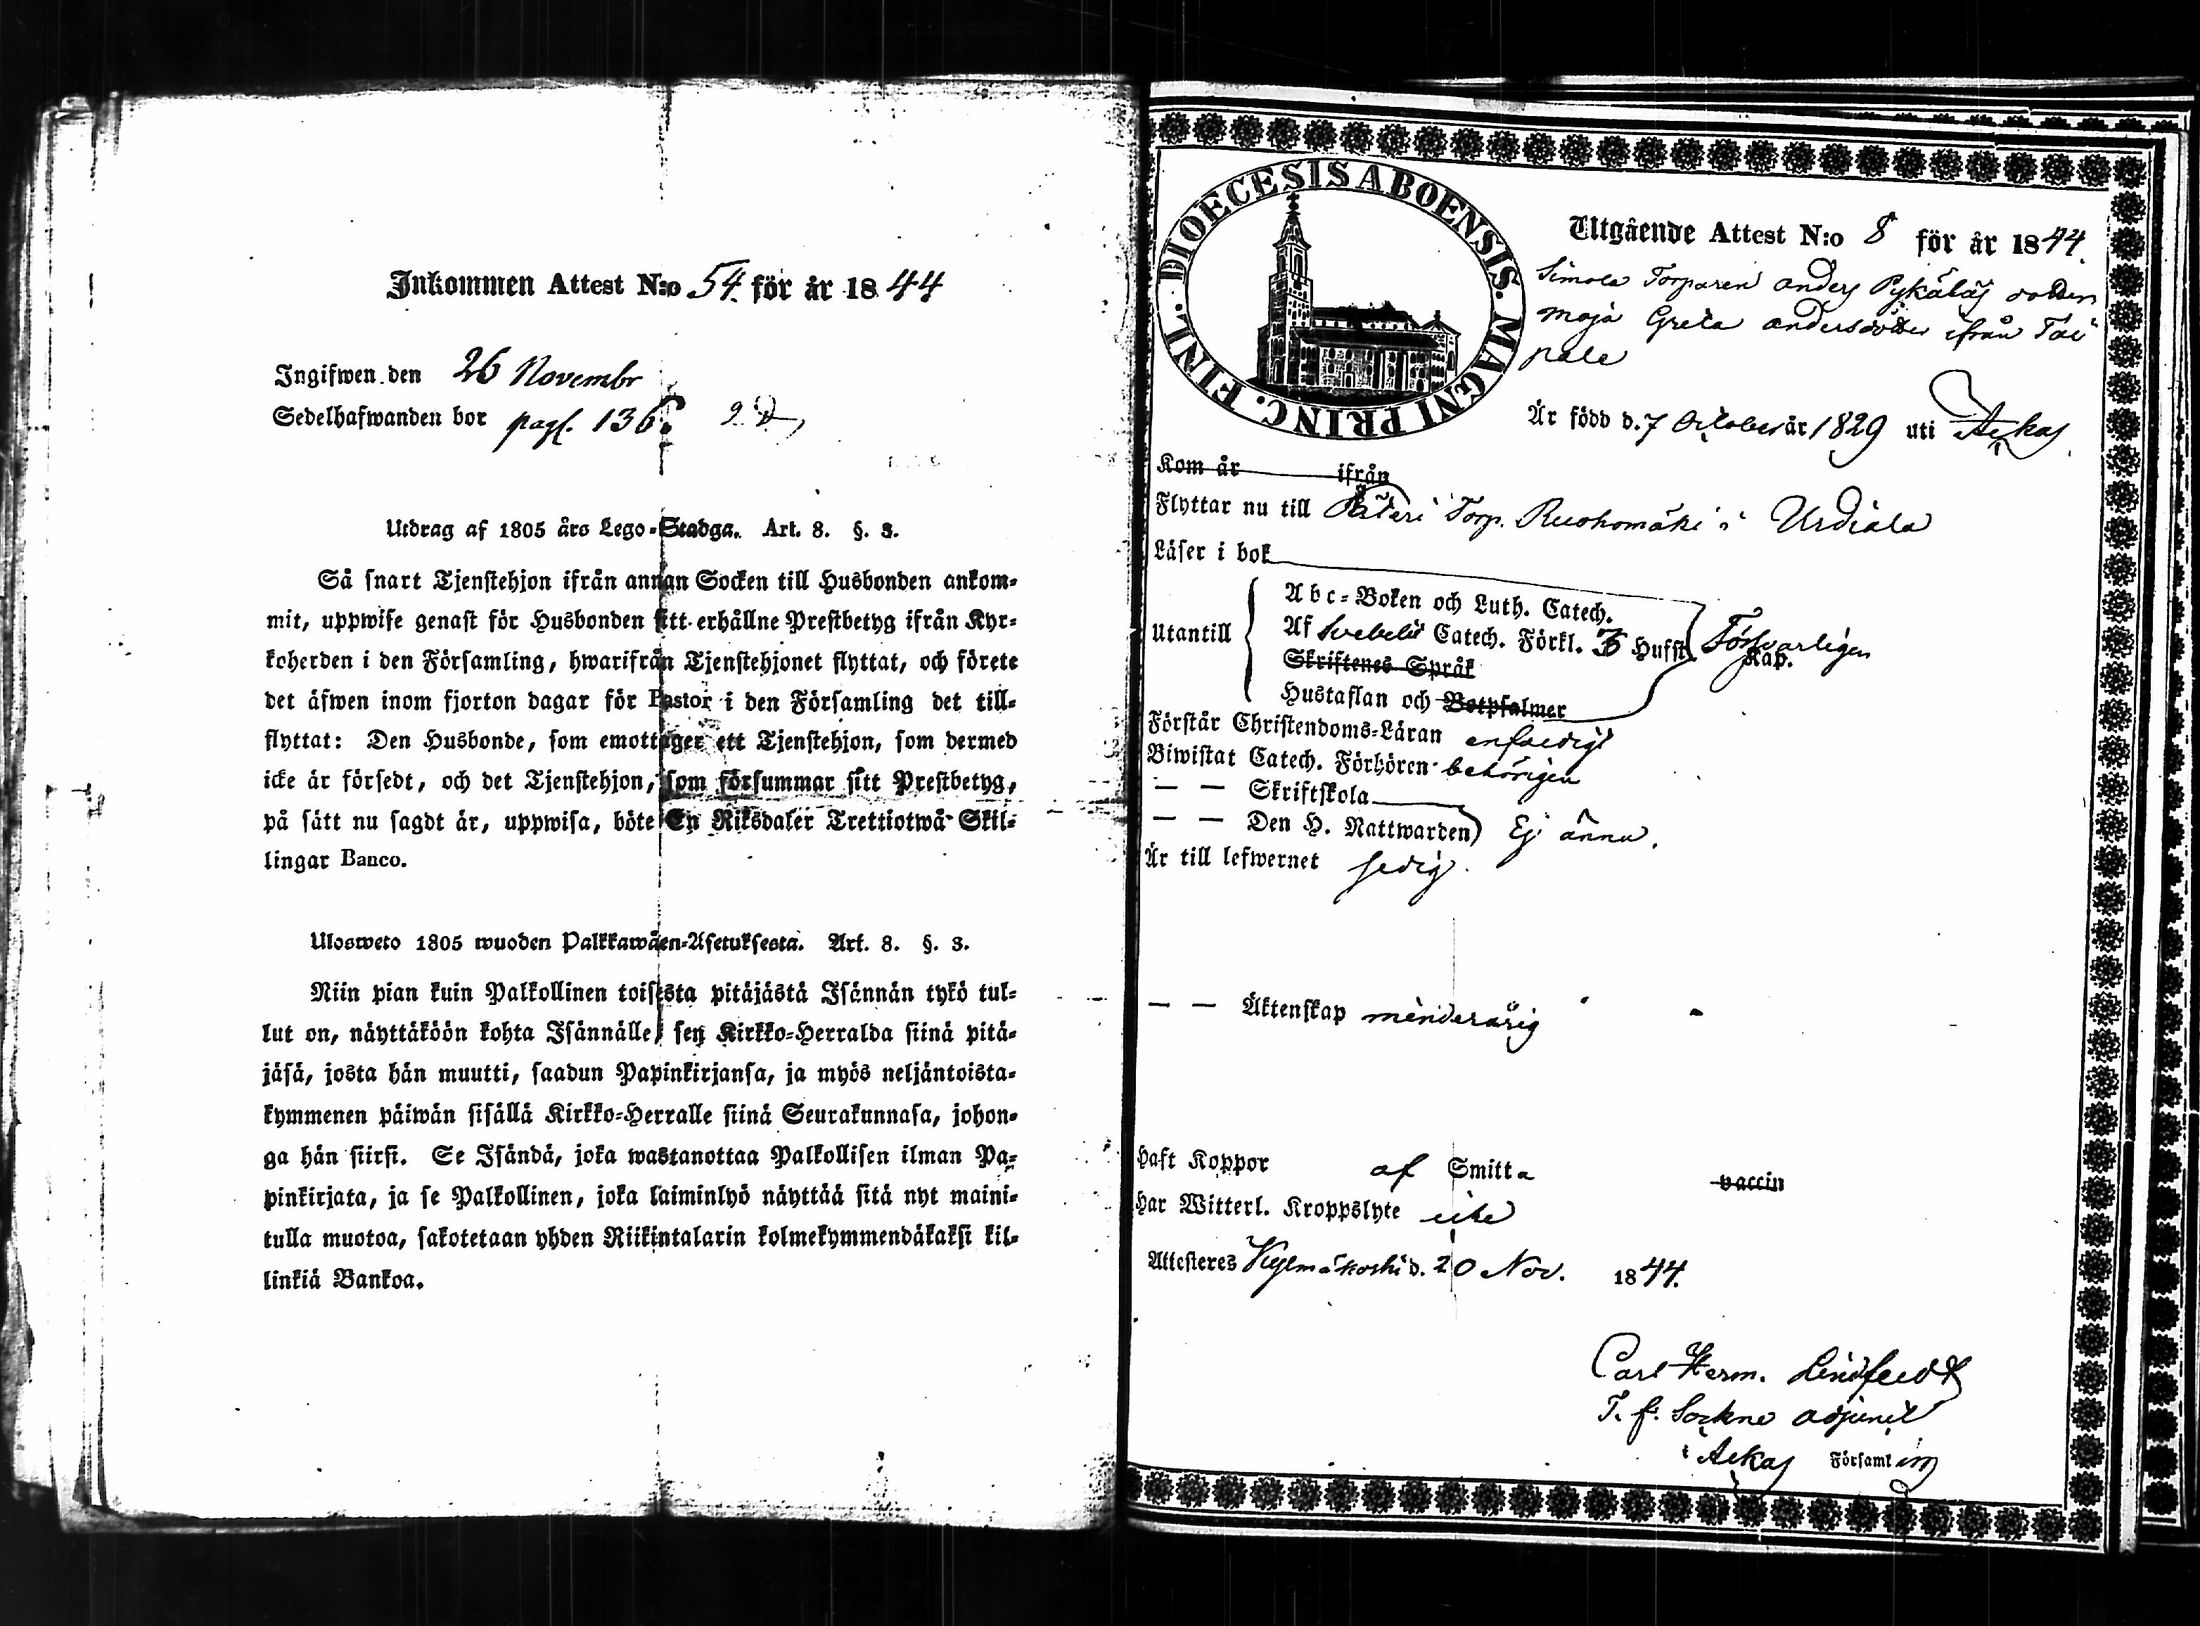 Inkommen Attest N:o 54. för år 1844
Ingifwen den 26 Novembr
Sedelhafwanden bor pag. 136.
Utdrag af 1805 års Lego-Stadga. Art. 8. §. 3.
Så snart Tjenstehjon ifrån annan Socken till Husbonden ankom-
mit, uppwise genast för Husbonden sitt erhållne Prestbetyg ifrån Kyr-
koherden i den Församling, hwarifrån Tjenstehjonet flyttat, och förete
det äfwen inom fjorton dagar för Pastor i den Församling det till-
flyttat: Den Husbonde, som emottager ett Tjenstehjon, som dermed
icke är försedt, och det Tjenstehjon, som försummar sitt Prestbetyg,
på sätt nu sagdt är, uppwisa, böte En Riksdaler Trettiotwå Skil-
lingar Banco.
Ulosweto 1805 wuoden Palkkawäen-Asetuksesta. Art. 8. §. 3.
Niin pian kuin Palkollinen toisesta pitäjästä Isännän tykö tul-
lut on, näyttäköön kohta Isännälle, sen Kirkko-Herralda siinä pitä-
jäsä, josta hän muutti, saadun Papinkirjansa, ja myös neljäntoista-
kymmenen päiwän sisällä Kirkko-Herralle siinä Seurakunnasa, johon-
ga hän siirsi. Se Isändä, joka wastanottaa Palkollisen ilman Pa-
pinkirjata, ja se Palkollinen, joka laiminlyö näyttää sitä nyt maini-
tulla muotoa, sakotetaan yhden Riikintalarin kolmekymmendäkaksi kil-
linkiä Bankoa.
DIOECESIS ABOENSIS. MAGNI PRINC. FINL.
Utgående Attest N:o 8 för år 1844.
Simola Torparen anders Pykäläs dotter
Maja Greta andersdotter ifrån Tai
pale
Är född d. 7 October år 1829 uti Ackas
Kom år ifrån
Flyttar nu till Torp. Ruohomäki i Urdiala
Läser i bok
Utantill
Abc-Boken och Luth. Catech.
Af Svebelii Catech. Förkl. Hufst. Kap. Försvarligen
Skriftenes Språk
Hustaflan och Botpsalmer
Förstår Christendoms-Läran enfaldigt
Biwistat Catech. Förhören behörigen
— — Skriftskola
— — Den H. Nattwarden Ej ännu.
Är till lefwernet sedig.
— — Äktenskap minderårig
Haft Koppor af Smitta vaccin
Har Witterl. Kroppslyte icke
Attesteres Kylmäkoski d. 20 Nov. 1844.
Carl Herm. Lindstedt
T. f. Sockne adjunct
i Ackas Församling